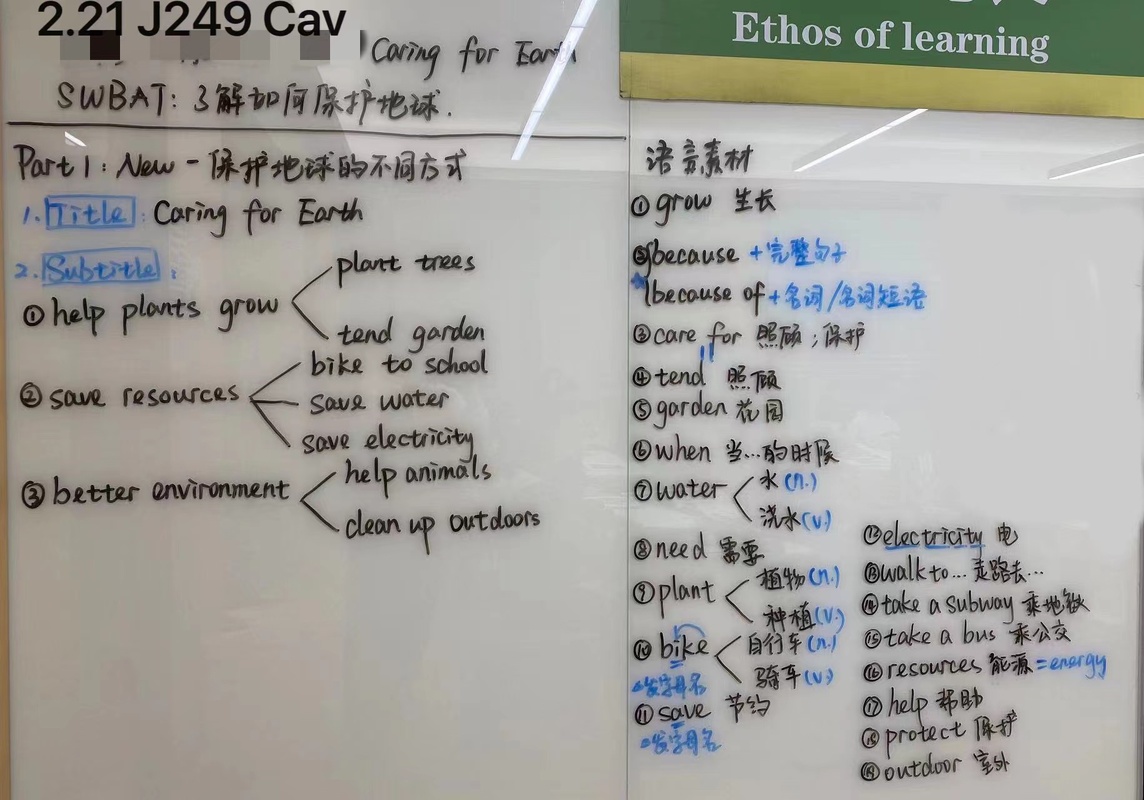 2.21 J249 Cav
Caring for Earth
SWBAT: 了解如何保护地球.
Part 1: New - 保护地球的不同方式
1. Title: Caring for Earth
2. Subtitle:
① help plants grow
plant trees
tend garden
② save resources
bike to school
save water
save electricity
③ better environment
help animals
clean up outdoors
Ethos of learning
语言素材
① grow 生长
② because +完整句子
because of +名词/名词短语
③ care for 照顾;保护
④ tend 照顾
⑤ garden 花园
⑥ when 当...的时候
⑦ water
水(n.)
浇水(v.)
⑧ need 需要
⑨ plant
植物(n.)
种植(v.)
⑩ bike
自行车(n.)
骑车(v.)
发字母名
⑪ save 节约
发字母名
⑫ electricity 电
⑬ walk to... 走路去...
⑭ take a subway 乘地铁
⑮ take a bus 乘公交
⑯ resources 能源 = energy
⑰ help 帮助
⑱ protect 保护
⑲ outdoor 室外